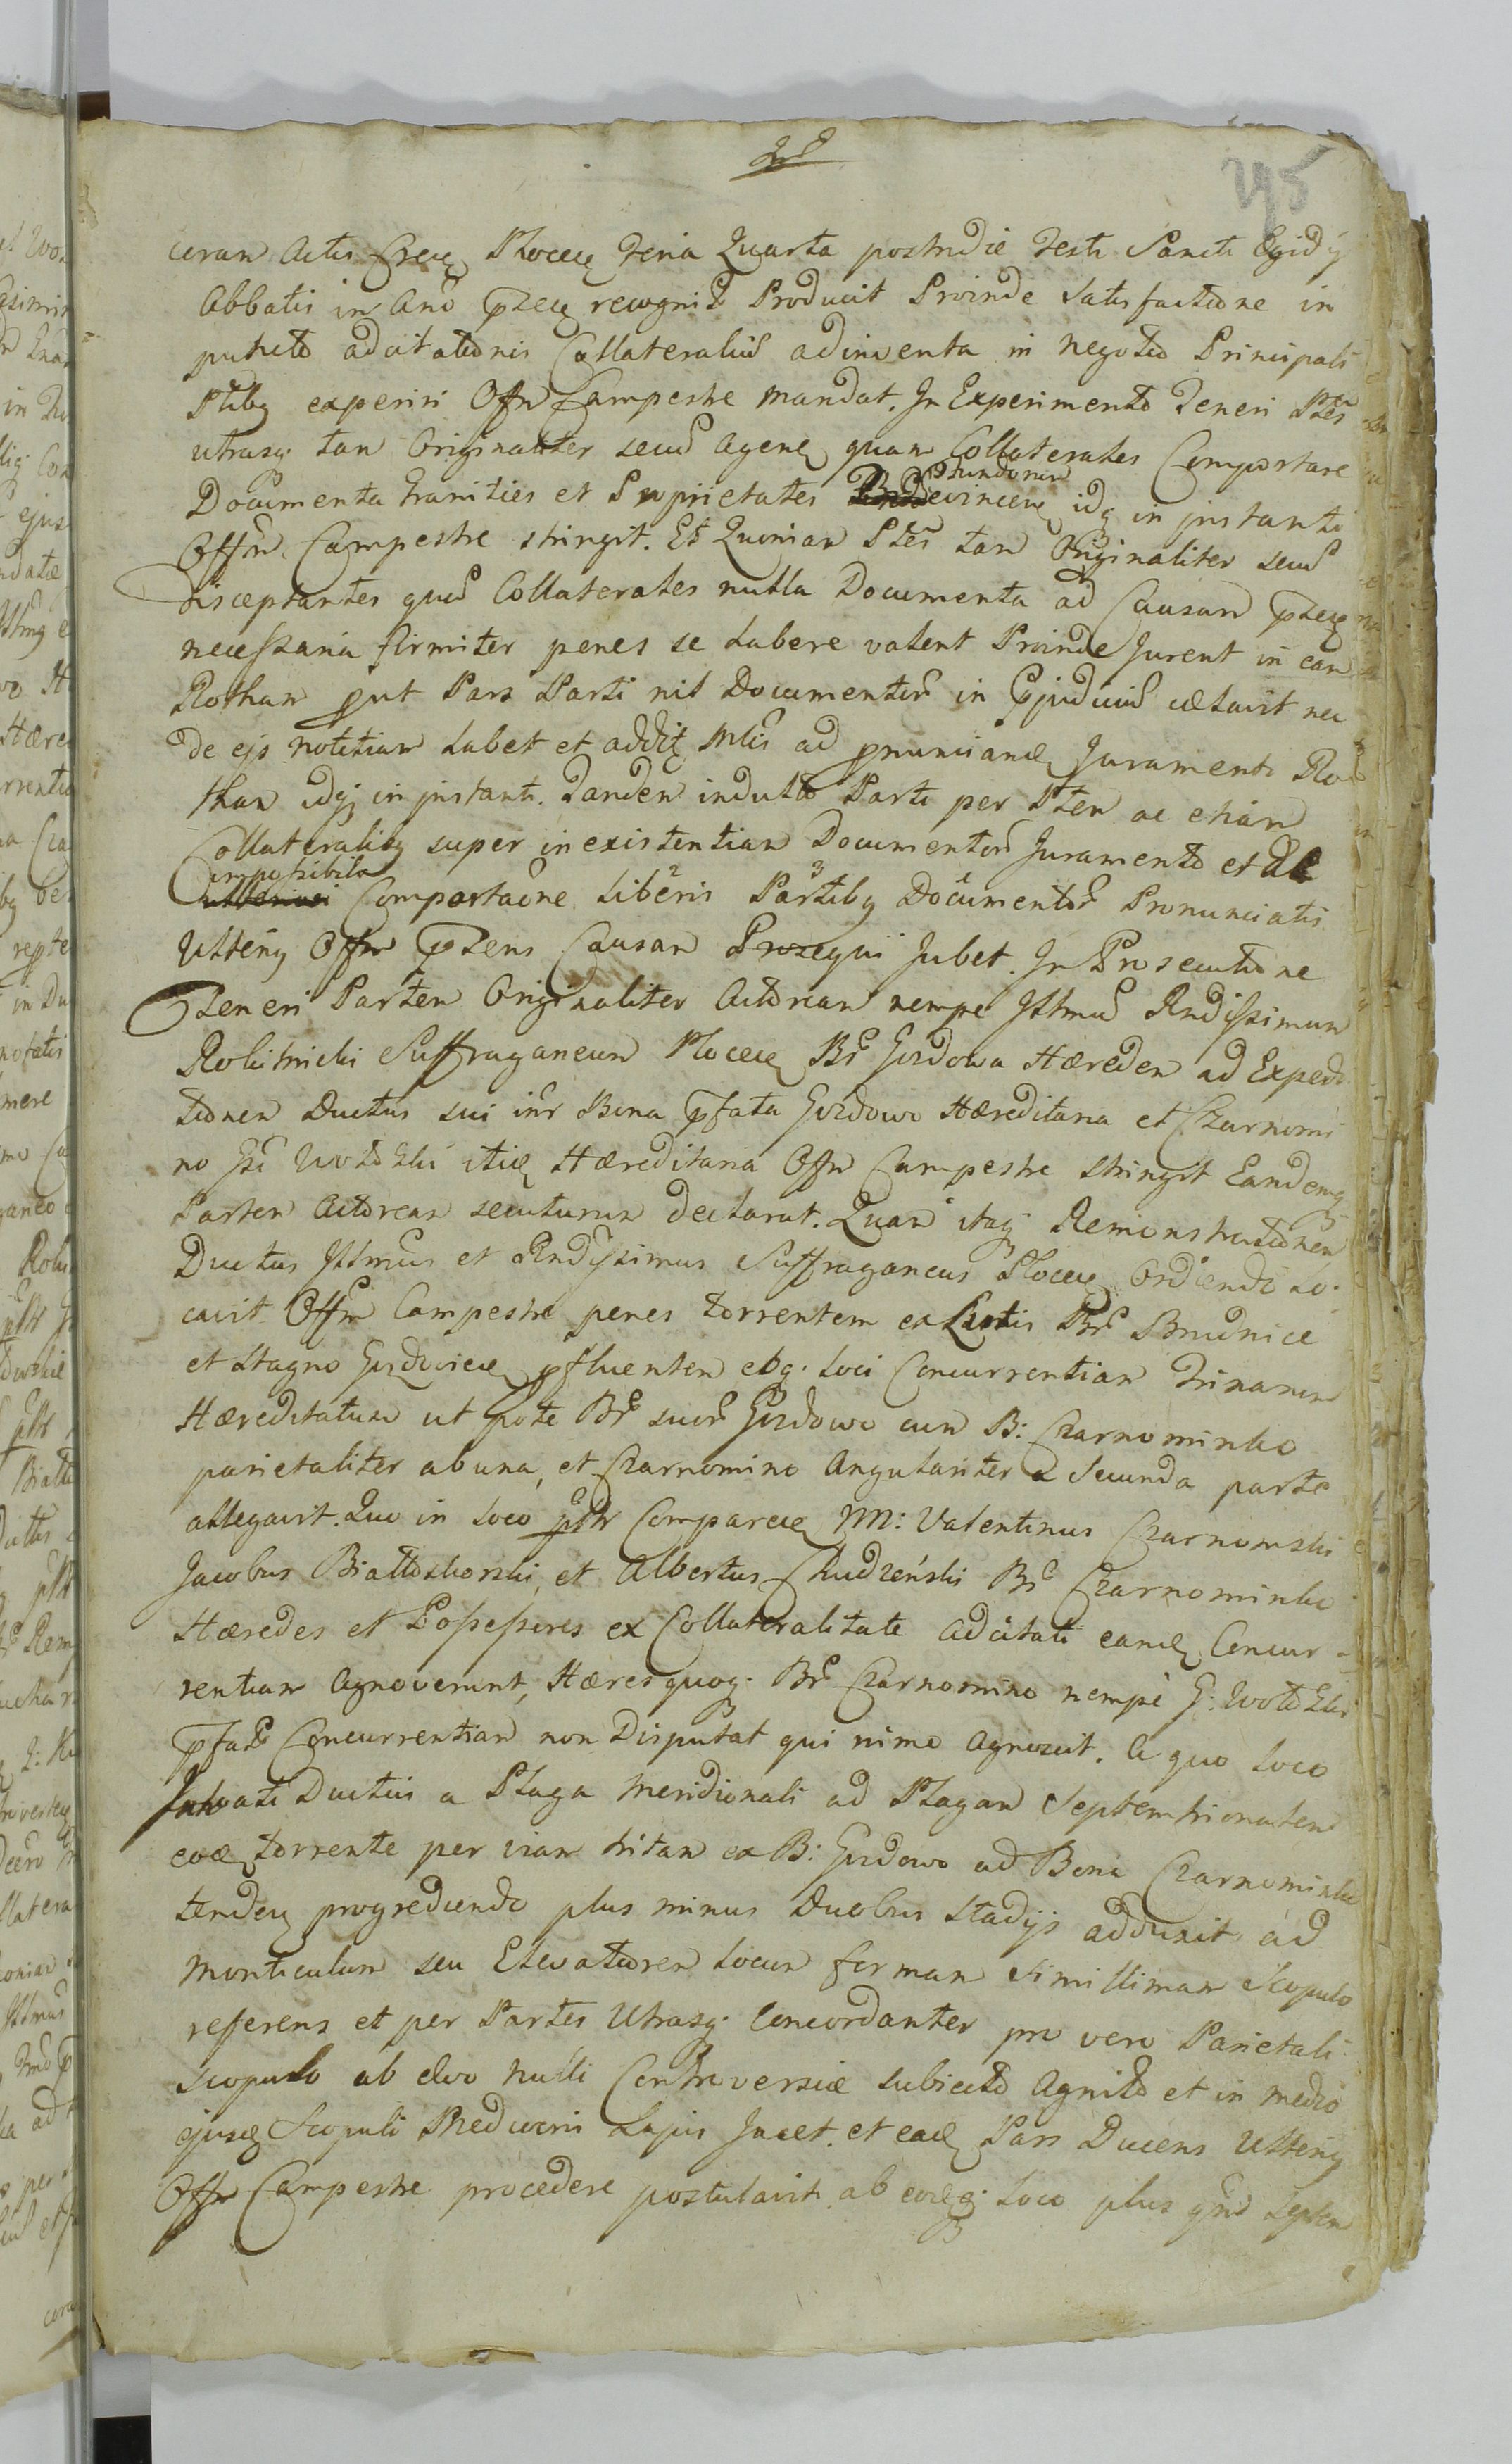 295
coram Actis Crensi Plocen Feria Quarta postridie Festi Sancti Egidij
Abbatis in Ano pnte recognit Producit Proinde Satisfactione in
puncto adcitationis Collateraliũ adinventa in Negotio Principali
Ptibg experiri Offm Campestre mandat. In Experimento Teneri Ptes
utrasq. tam Originaliter secũ Agen quam Collaterales Comportare
Documenta Granities et Proprietates Fundorum evincen idq in instanti
Offm Campestre stringit. Et Quoniam Ptes tam Originaliter secũ
Disceptantes quã Collaterales nulla Documenta ad Causam pnte
necessaria firmiter penes se habere valent Proinde Jurent in eam
Rotham put Pars Parti nil Documentor in Pjudiciũ celavit nec
de ejs notitiam habet et addit Mlis ad pnuncianda Juramenti Ro
tham idq. in instanti. Tandem indulto Parti per Ptem ac etiam
Collateralibg super inexistentiam Documentor Juramento et ab
impossibili Comportaõne liberis Partibg Documentor Pronunciatis
Ulterig Offm Ptens Causam Prosequi Jubet. In Prosecutione
Teneri Partem Originaliter Actoream nempe Illmũ Rndissimum
Rokitnicki Suffraganeum Plocen Br Gozdowa Hæredem ad Expedi
tionem Ductus sui inr Bona Pfata Gozdowo Hæreditaria et Czarnomi
no Gsi Wotoski itid Hæreditaria Offm Campestre Stringit Eandemq
Partem Actoream secuturum declarat. Quam itaq Remonstrationem
Ductus Illmus et Rndissimus Suffraganeus Plocen Ordiendo lo.
cavit Offm Campestre penes torrentem ex Lutis Br Brudnice
et Stagno Gozdovien pfluentem ibq. loci Concurrentiam Trinarum
Hæreditatum ut pote Br suor Gozdowo cum B: Czarnominko
parietaliter ab una, et Czarnomino Angulariter a Secunda parte
allegavit. Quo in loco psr Comparen M: Valentinus Czarnomski
Jacobus Białłoskorski, et Albertus Chudzeński Br Czarnominko
Hæredes et Possessores ex Collateralitate adcitati eand Concur-
rentiam Agnoverunt, Hæres quoq. Br Czarnomino nempè G: Wotoski
Pfatã Concurrentiam non Disputat qui nimo Agnoscit. A quo loco
Ductus a Plaga Meridionali ad Plagam Septemtrionalem
eod torrente per viam tritam ex B: Gozdowo ad Bona Czarnominko
tenden progrediendo plus minus Duobus Stadijs adduxit ad
Monticulum seu Elevatiorem locum formam simillimam Scopulo
referens et per Partes Utrasq. Concordanter pro vero Parietali
scopulo ab evo nulli Controversiæ subiecto Agnito et in medio
ejusd Scopuli Mediocris Lapis Jacet. et ead Pars Ducens Ulterig
Offm Campestre procedere postulavit ab eodq. loco plus qm Septem